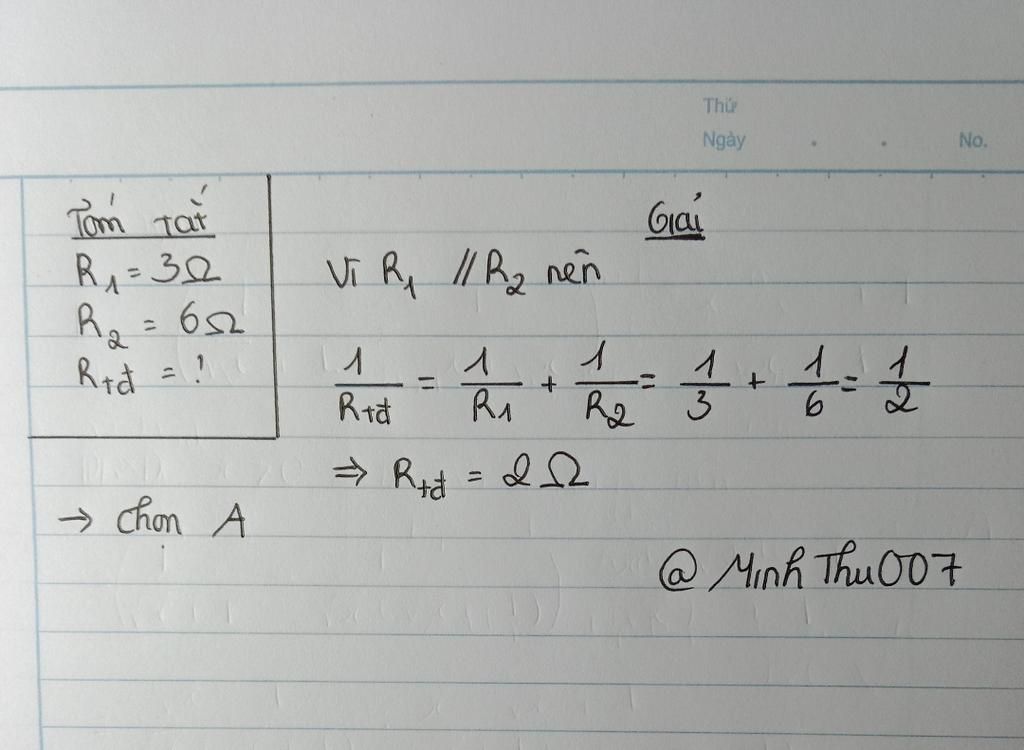 Thứ
Ngày . . No.
Tóm tắt
R₁ = 3Ω
R₂ = 6Ω
Rtđ = ?
Giải
Vì R₁ // R₂ nên
1/Rtđ = 1/R₁ + 1/R₂ = 1/3 + 1/6 = 1/2
⇒ Rtđ = 2Ω
→ Chọn A
@MinhThu007